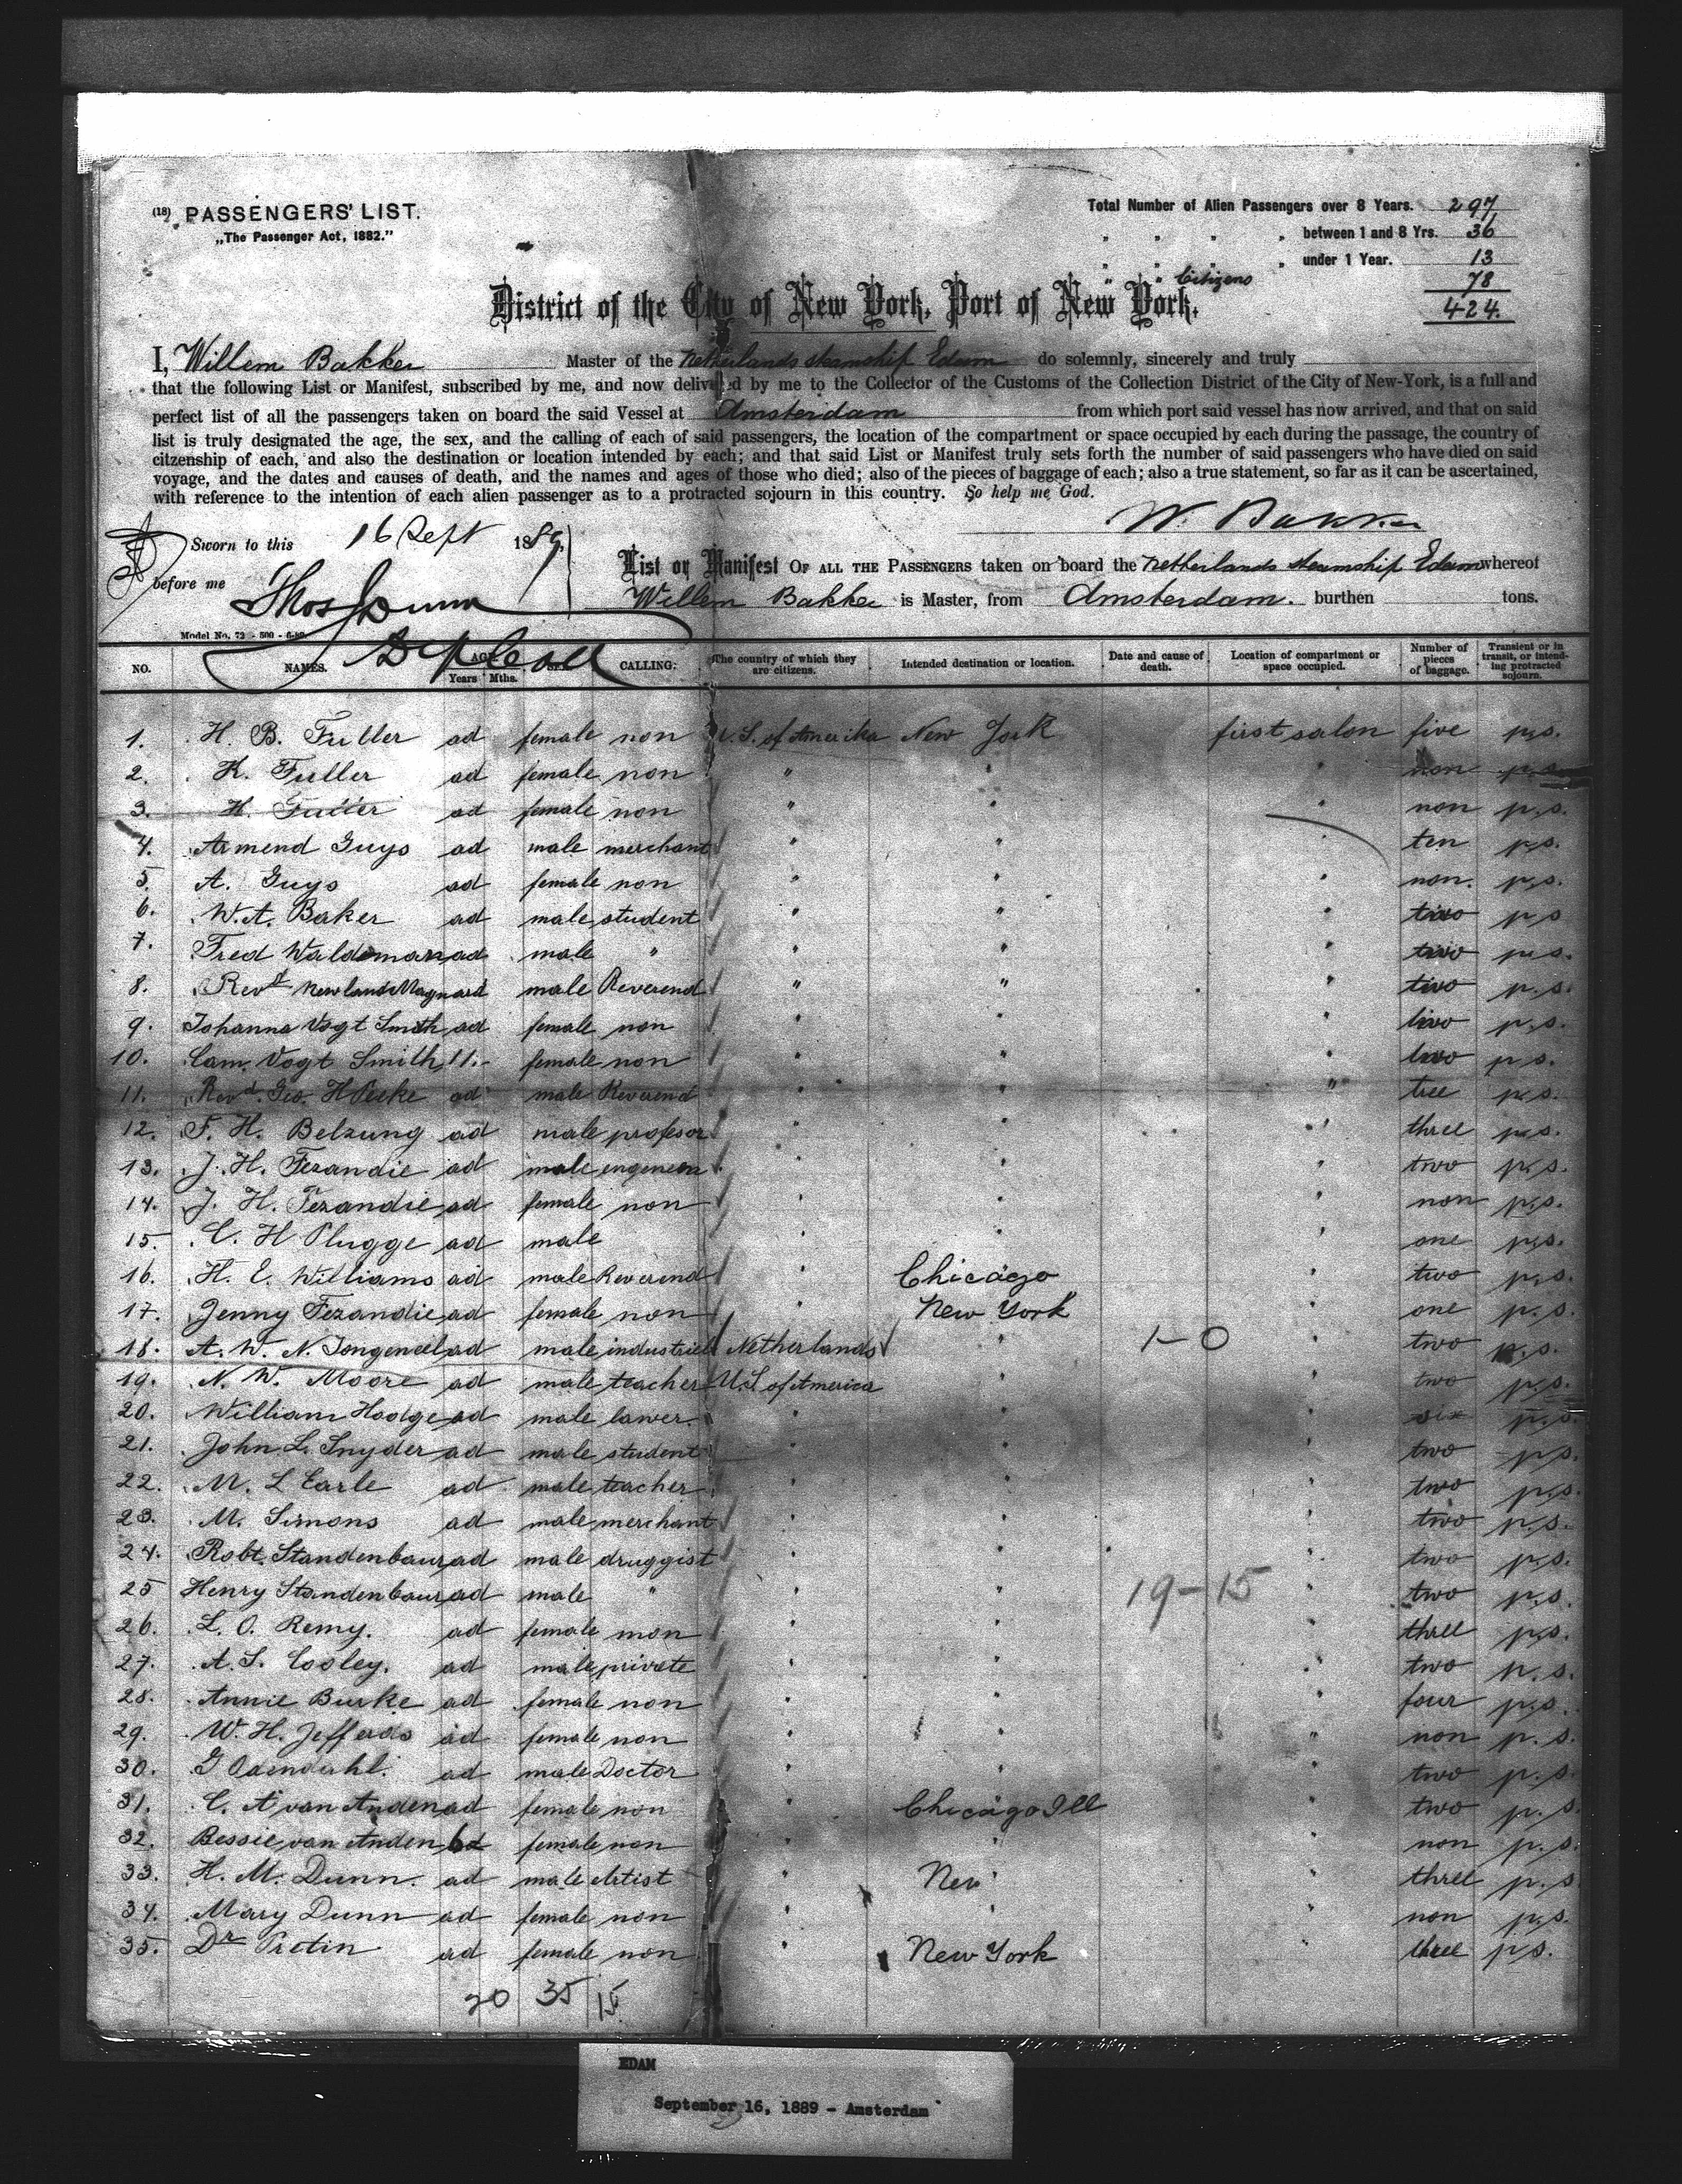 (18) PASSENGERS' LIST.
„The Passenger Act, 1882."
Total Number of Alien Passengers over 8 Years. 297
" " " " between 1 and 8 Yrs. 36
" " " " under 1 Year. 13
" " Citizens 78
424.
District of the City of New York, Port of New York.
I, Willem Bakker Master of the Netherlands steamship Edam do solemnly, sincerely and truly
that the following List or Manifest, subscribed by me, and now delivered by me to the Collector of the Customs of the Collection District of the City of New-York, is a full and
perfect list of all the passengers taken on board the said Vessel at Amsterdam from which port said vessel has now arrived, and that on said
list is truly designated the age, the sex, and the calling of each of said passengers, the location of the compartment or space occupied by each during the passage, the country of
citzenship of each, and also the destination or location intended by each; and that said List or Manifest truly sets forth the number of said passengers who have died on said
voyage, and the dates and causes of death, and the names and ages of those who died; also of the pieces of baggage of each; also a true statement, so far as it can be ascertained,
with reference to the intention of each alien passenger as to a protracted sojourn in this country. So help me God.
W. Bakker
Sworn to this 16 Sept 1889
before me Thos Dunn
Dep Coll
List or Manifest OF ALL THE PASSENGERS taken on board the Netherlands steamship Edam whereof
Willem Bakker is Master, from Amsterdam. burthen tons.
Model No. 72 - 500 - 6-89
NO. NAMES. AGE Years Mths. SEX CALLING: The country of which they are citizens. Intended destination or location. Date and cause of death. Location of compartment or space occupied. Number of pieces of baggage. Transient or in transit, or intending protracted sojourn.
1. H. B. Fuller ad female non U.S. of Amerika New York first salon five p.s.
2. K. Fuller ad female non " " " non p.s.
3. H. Fuller ad female non " " " non p.s.
4. Armend Guys ad male merchant " " " ten p.s.
5. A. Guys ad female non " " " non. p.s.
6. W. A. Baker ad male student " " " two p.s
7. Fred Waldeman ad male " " " " two p.s.
8. Revd Newland Maynard male Reverend " " " two p.s.
9. Johanna Vogt Smith ad female non " " " two p.s.
10. Cam. Vogt Smith 11.- female non " " " two p.s.
11. Revd. Geo. H Peeke ad male Reverend " " " tree p.s.
12. F. H. Belzung ad male profesor " " " three p.s.
13. J. H. Fezandie ad male engeneer " " " two p.s.
14. J. H. Fezandie ad female non " " " non p.s.
15. C. H Plugge ad male " " " one p.s.
16. H. C. Williams ad male Reverend " Chicago " two p.s.
17. Jenny Fezandie ad female non " New York " one p.s.
18. A. W. N. Jongeneel ad male industriel Netherlands " 1-0 " two p.s.
19. N. W. Moore ad male teacher U.S. of America " " two p.s.
20. William Hodge ad male lawer. " " " six p.s.
21. John L. Snyder ad male student " " " two p.s.
22. M. L Earle ad male teacher " " " two p.s.
23. M. Simons ad male merchant " " " two p.s.
24. Robt. Standenbaur ad male druggist " " " two p.s.
25 Henry Standenbaur ad male " " " 19-15 " two p.s.
26. L. O. Remy. ad female non " " " three p.s.
27. A. S. Cooley. ad male private " " " two p.s.
28. Annie Burke ad female non " " " four p.s.
29. W. H. Jefferds ad female non " " " non p.s.
30. G ad male Doctor " " " two p.s.
31. C. A van Anden ad female non " Chicago Ill " two p.s.
32. Bessie van Anden 6 female non " " " non p.s.
33. H. M. Dunn. ad male Artist " New " " three p.s
34. Mary Dunn ad female non " " " non p.s.
35. Dr ad female non " New York " three p.s.
20 35 15
EDAM
September 16, 1889 - Amsterdam